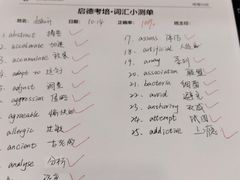 启德考培·词汇小测单
姓名: 日期: 10.14 正确率: 100%
1. abstract 摘要
2. accelerate 加速
3. accumulate 积累
4. adapt to 适应
5. adjust 调整
aggression 侵略
agreeable 愉快的
allergic 过敏
ancient 古老的
analyse 分析
17. assess 评估
18. artificial 人造的
19. array 系列
20. association 联盟
21. bacteria 细菌
22. avoid 避免
23. authority 权威
24. attempt 试图
25. addictive 上瘾